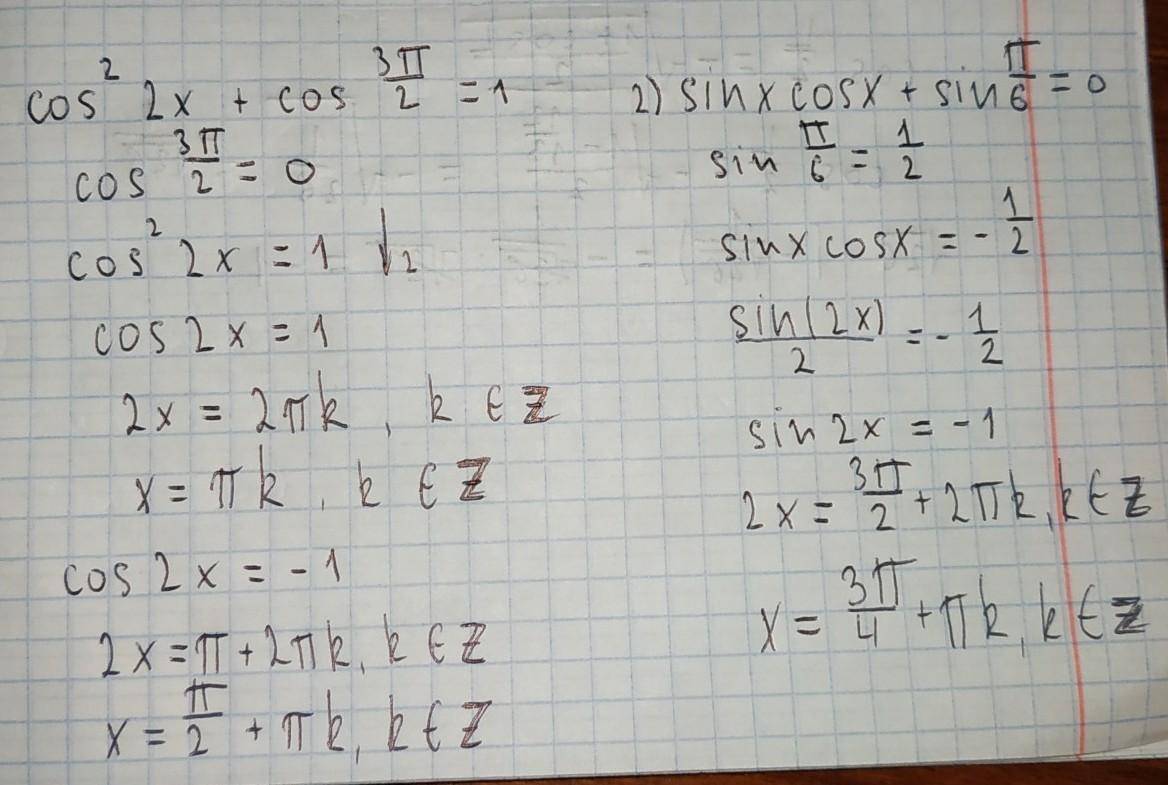 cos² 2x + cos 3π/2 = 1
cos 3π/2 = 0
cos² 2x = 1 √2
cos 2x = 1
2x = 2πk, k ∈ Z
x = πk, k ∈ Z
cos 2x = -1
2x = π + 2πk, k ∈ Z
x = π/2 + πk, k ∈ Z
2) sinx cosx + sin π/6 = 0
sin π/6 = 1/2
sinx cosx = - 1/2
sin(2x)/2 = - 1/2
sin 2x = -1
2x = 3π/2 + 2πk, k ∈ Z
x = 3π/4 + πk, k ∈ Z